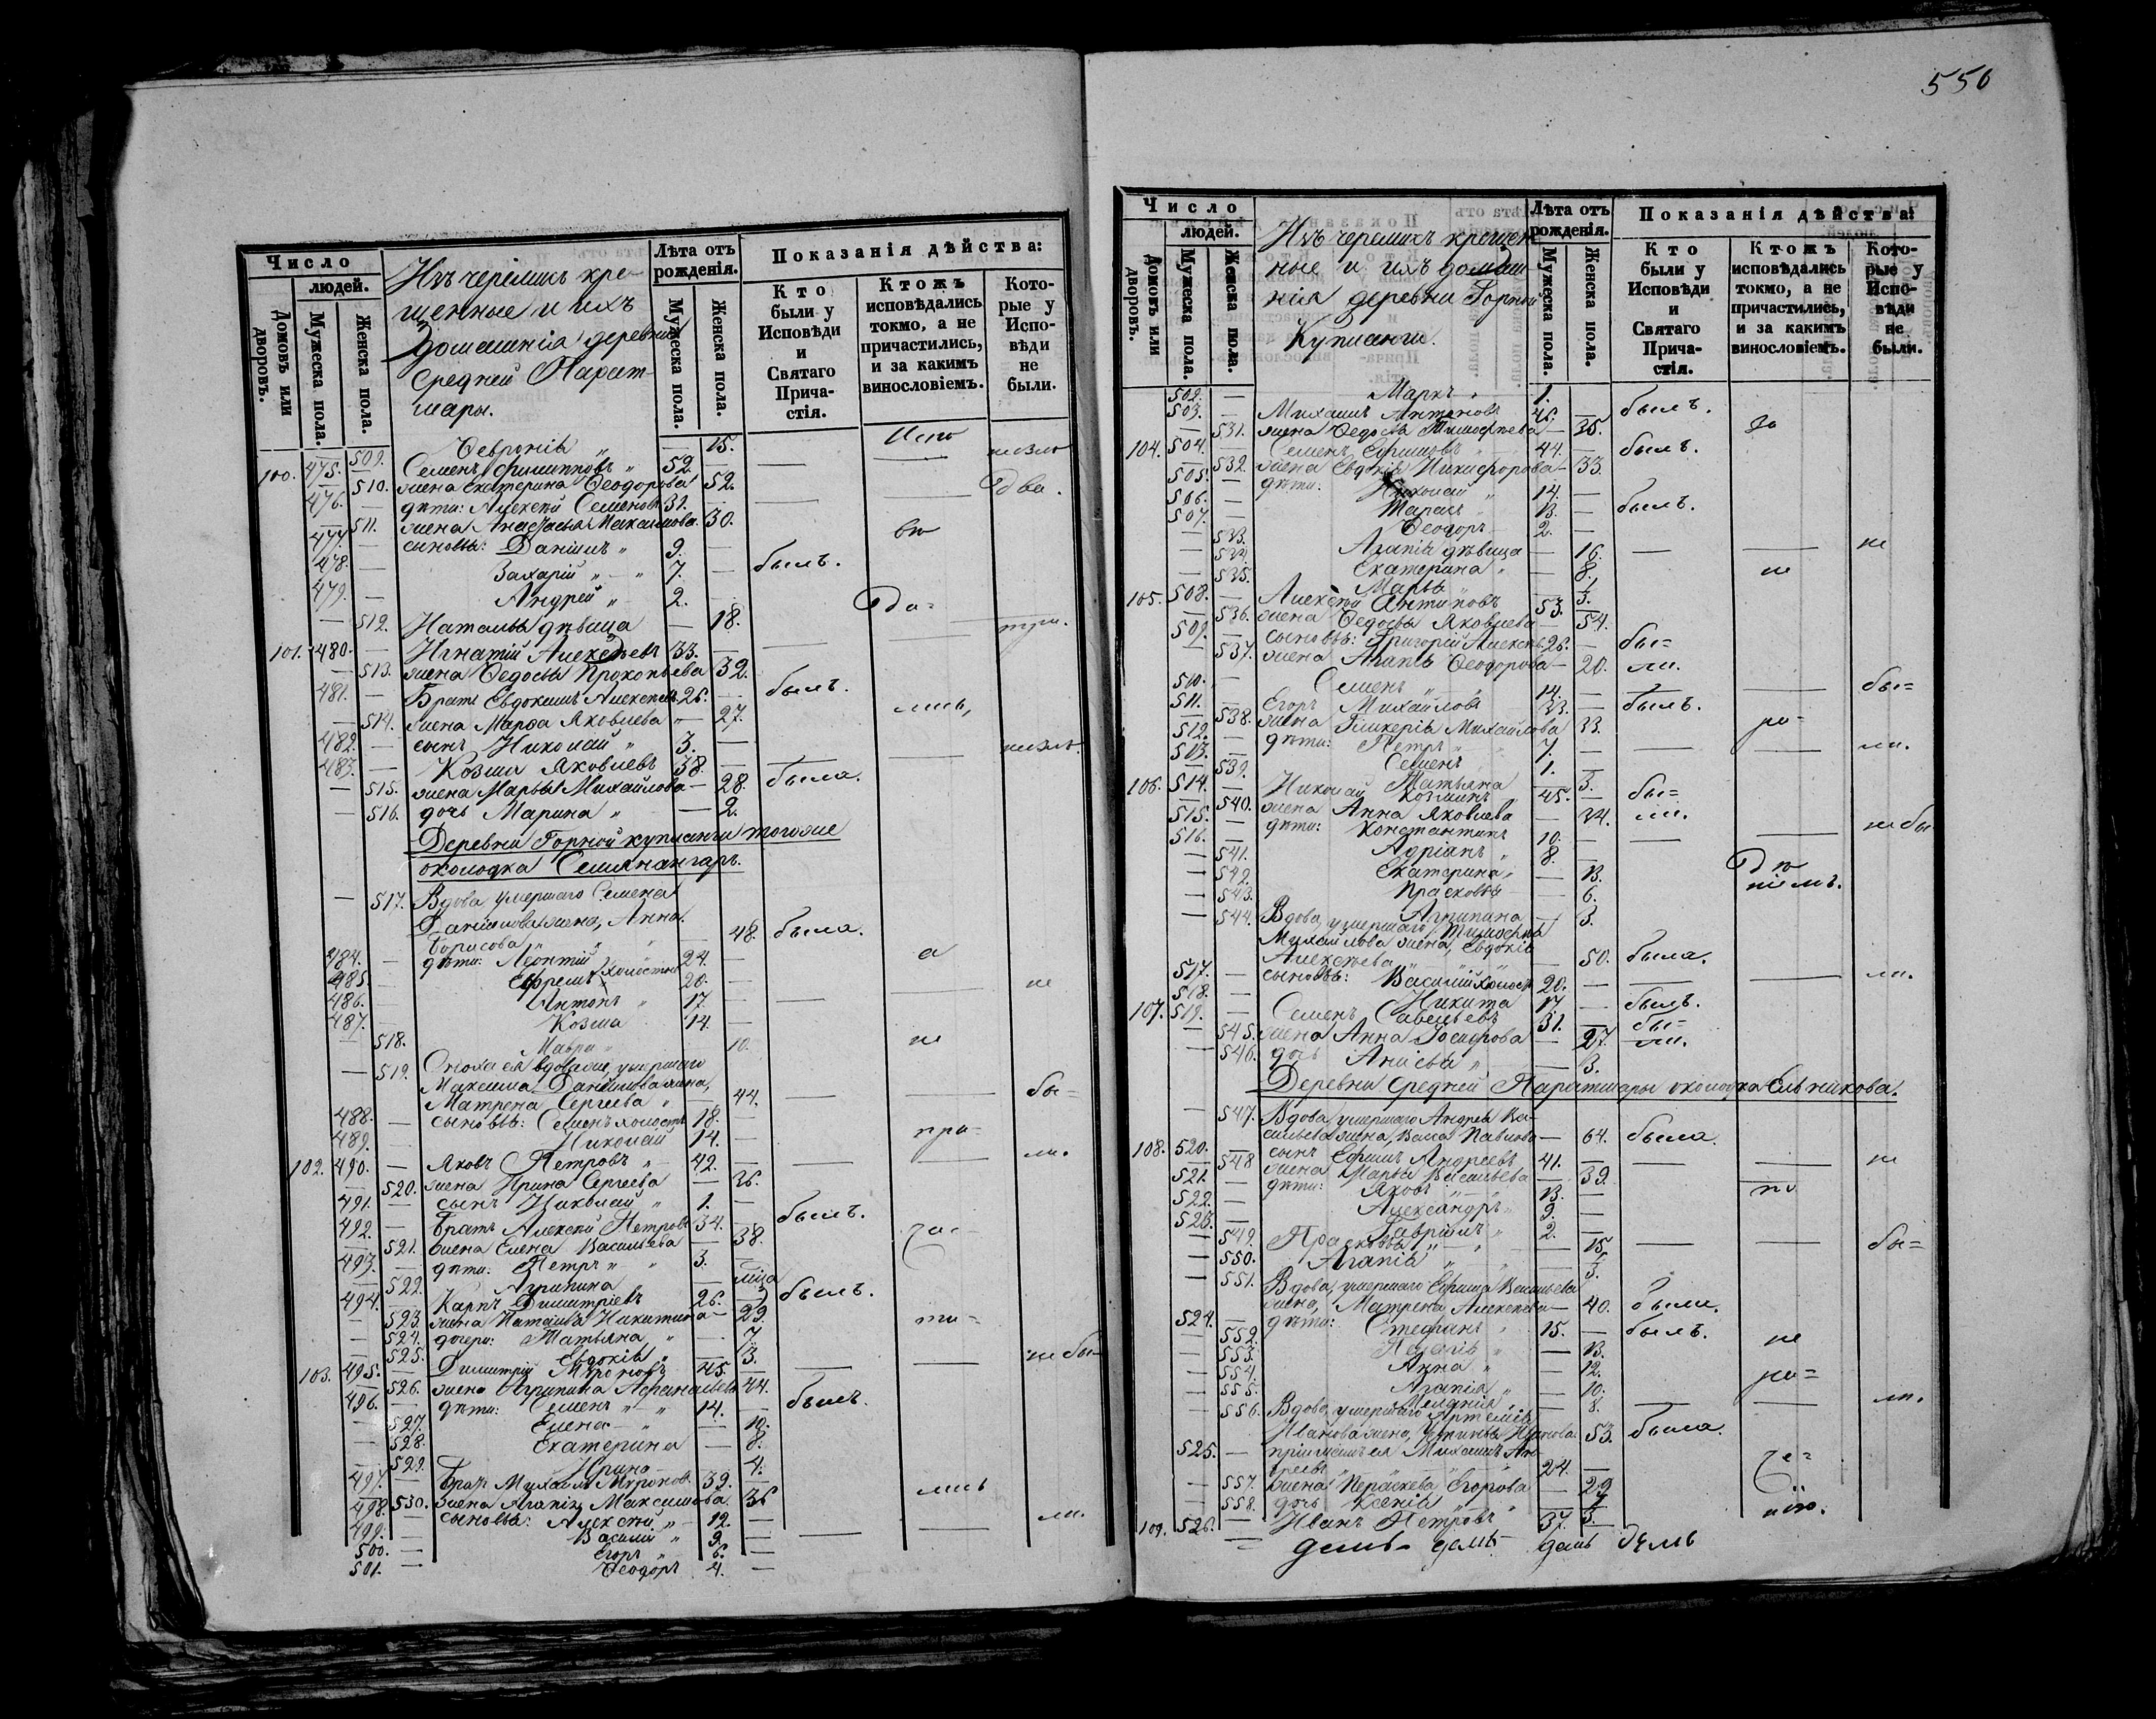 550
Число
людей.
Домовъ или дворовъ.
Мужеска пола.
Женска пола.
Изъ черемисъ кре-
щенные и ихъ
домашнія деревни
Средней Парат-
мары.
Лѣта отъ рожденія.
Мужеска пола.
Женска пола.
Показанія дѣйства:
Кто были у Исповѣди и Святаго Причастія.
Ктожъ исповѣдались токмо, а не причастились, и за какимъ винословіемъ.
Которые у Исповѣди не были.
509. Февронія „ — 15. Испо
100. 475. — Семенъ Филипповъ „ 52. —
— 510. жена Екатерина Феодорова 52.
476. — дѣти: Алексѣй Семеновъ 31. два.
— 511. жена Анастасья Максимова 30.
477. — сыновья: Даніилъ „ 9. — вѣ
478. — Захарій „ 7. — былъ.
479. — Андрей „ 2. —
— 512. Наталья дѣвица — 18.
101. 480. — Игнатій Алексѣевъ 33. —
— 513. жена Федосья Прокопьева 32.
481. — Братъ Евдокимъ Алексѣевъ 26. — былъ.
— 514. жена Марфа Яковлева — 27. лись,
482. — сынъ Николай „ 3. —
483. — Козма Яковлевъ 38. —
— 515. жена Марья Михайлова — 28. была.
— 516. дочь Марина „ — 2.
Деревни Горной купсанги тогоже
околодка Семянангаръ.
— 517. Вдова, умершаго Семена
Данилова жена, Анна
Борисова „ „ — 48. была.
484. — дѣти: Леонтій 24. — а
485. — Ефремъ холостые 20. —
486. — Антонъ „ 17. — не
487. — Козма 14. —
— 518. Мавра „ 10. не
— 519. Сноха ея вдова же, умершаго
Максима Данилова жена,
Матрена Сергеева „ — 44. бы=
488. — сыновья: Семенъ холостъ 18.
489. — Николай 14. — при-
102. 490. — Яковъ Петровъ „ 42. — ли.
— 520. жена Ирина Сергеева — 36.
491. — сынъ Николай „ 1. —
492. — Братъ Алексѣй Петровъ 34. — былъ.
— 521. жена Елена Васильева 38. ча-
493. — дѣти: Петръ „ „ 3. —
— 522. Агрипина „
494. — Карпъ Димитріевъ 26. былъ.
— 523. жена Наталья Никитина — 29. ти=
— 524. дочери: Татьяна „ — 7.
— 525. Евдокія „ — 3.
103. 495. — Димитрій Мироновъ 45. — не бы-
— 526. жена Агрипина Афанасьева 44.
496. — дѣти: Семенъ „ „ 14. — былъ.
— 527. Елена „ — 10.
— 528. Екатерина — 8.
— 529. Ирина — 4.
497. — Братъ Михаилъ Мироновъ 39. —
— 530. жена Агапія Максимова 36 лись
498. — сыновья: Алексѣй „ 12. — ли.
499. — Василій „ 9. —
500. — Егоръ „ 6. —
501. — Феодоръ 4. —
Число
людей.
Домовъ или дворовъ.
Мужеска пола.
Женска пола.
Изъ черемисъ крещен-
ные и ихъ домаш-
нія деревни Горной
Купсанги.
Лѣта отъ рожденія.
Мужеска пола.
Женска пола.
Показанія дѣйства:
Кто были у Исповѣди и Святаго Причастія.
Ктожъ исповѣдались токмо, а не причастились, и за какимъ винословіемъ.
Которые у Исповѣди не были.
502. — Маркъ „ 1.
503. — Михаилъ Антоновъ 46. — былъ.
— 531. жена Федосья Тимофѣева — 35. до
104. 504. — Семенъ Ефимовъ 44. — былъ.
— 532. жена Евдокія Никифорова — 33.
505. — дѣти: Николай „ 14. —
506. — Тарасъ 13. — былъ.
507. — Феодоръ 2. —
— 533. Агапія дѣвица — 16. — не
— 534. Екатерина „ — 8. не
— 535. Марья 1/2.
105. 508. — Алексѣй Антиповъ 53. —
— 536. жена Федосья Яковлева — 54.
509. — сыновья: Григорій Алексѣевъ 26. — бы=
— 537. жена Агапія Феодорова — 20. ли.
510. — Семенъ „ „ 14. — бы=
511. — Егоръ Михайловъ 33. — былъ.
— 538. жена Гликерія Михайлова 33. ро-
512. — дѣти: Петръ „ 7. — ли.
513. — Семенъ 1. —
— 539. Татьяна — 3.
106. 514. — Николай Козминъ „ 45. — бы=
— 540. жена Анна Яковлева — 34. ли.
515. — дѣти: Константинъ 10. — не бы
516. — Адріанъ „ 8. —
— 541. Екатерина „ — 13.
— 542. Прасковья — 6. ніемъ.
— 543. Агрипина — 3.
— 544. Вдова, умершаго Тимофея
Михайлова жена, Евдокія
Алексѣева — 50. была.
517. — сыновья: Василій холостъ 20. — ли.
518. — Никита 17. — былъ.
107. 519. — Семенъ Савельевъ 31. — бы=
— 545. жена Анна Іосифова — 27. ли.
— 546. дочь Анисья „ — 3.
Деревни Средней Паратмары околодка Ельникова.
— 547. Вдова, умершаго Андрея Ва-
сильева жена, Васа Павлова — 64. была.
108. 520. — сынъ Ефимъ Андреевъ 41. — не
— 548 жена Марья Васильева — 39.
521. — дѣти: Яковъ „ „ 13. — по
522. — Александръ „ 9. —
523. — Гавріилъ „ 2. —
— 549. Прасковья „ „ — 15. бы=
— 550. Агапія „ „ — 3.
— 551. Вдова, умершаго Ефима Васильева
жена, Матрена Алексѣева — 40. была.
524. — дѣти: Стефанъ „ 15. — былъ.
— 552. „ — 13. не
— 553. Анна „ — 12.
— 554. Агапія „ — 10. ра=
— 555. Меланія „ — 8. ли.
— 556. Вдова, умершаго Артемія
Иванова жена, Устинья Иванова 53. была.
525. — пріимышъ ея Михаилъ Ан-
дреевъ „ „ 24. — че=
— 557. жена Пераскева Егорова — 29
— 558. дочь Ксенія „
109. 526. — Иванъ Петровъ 37. — нію.
день день день